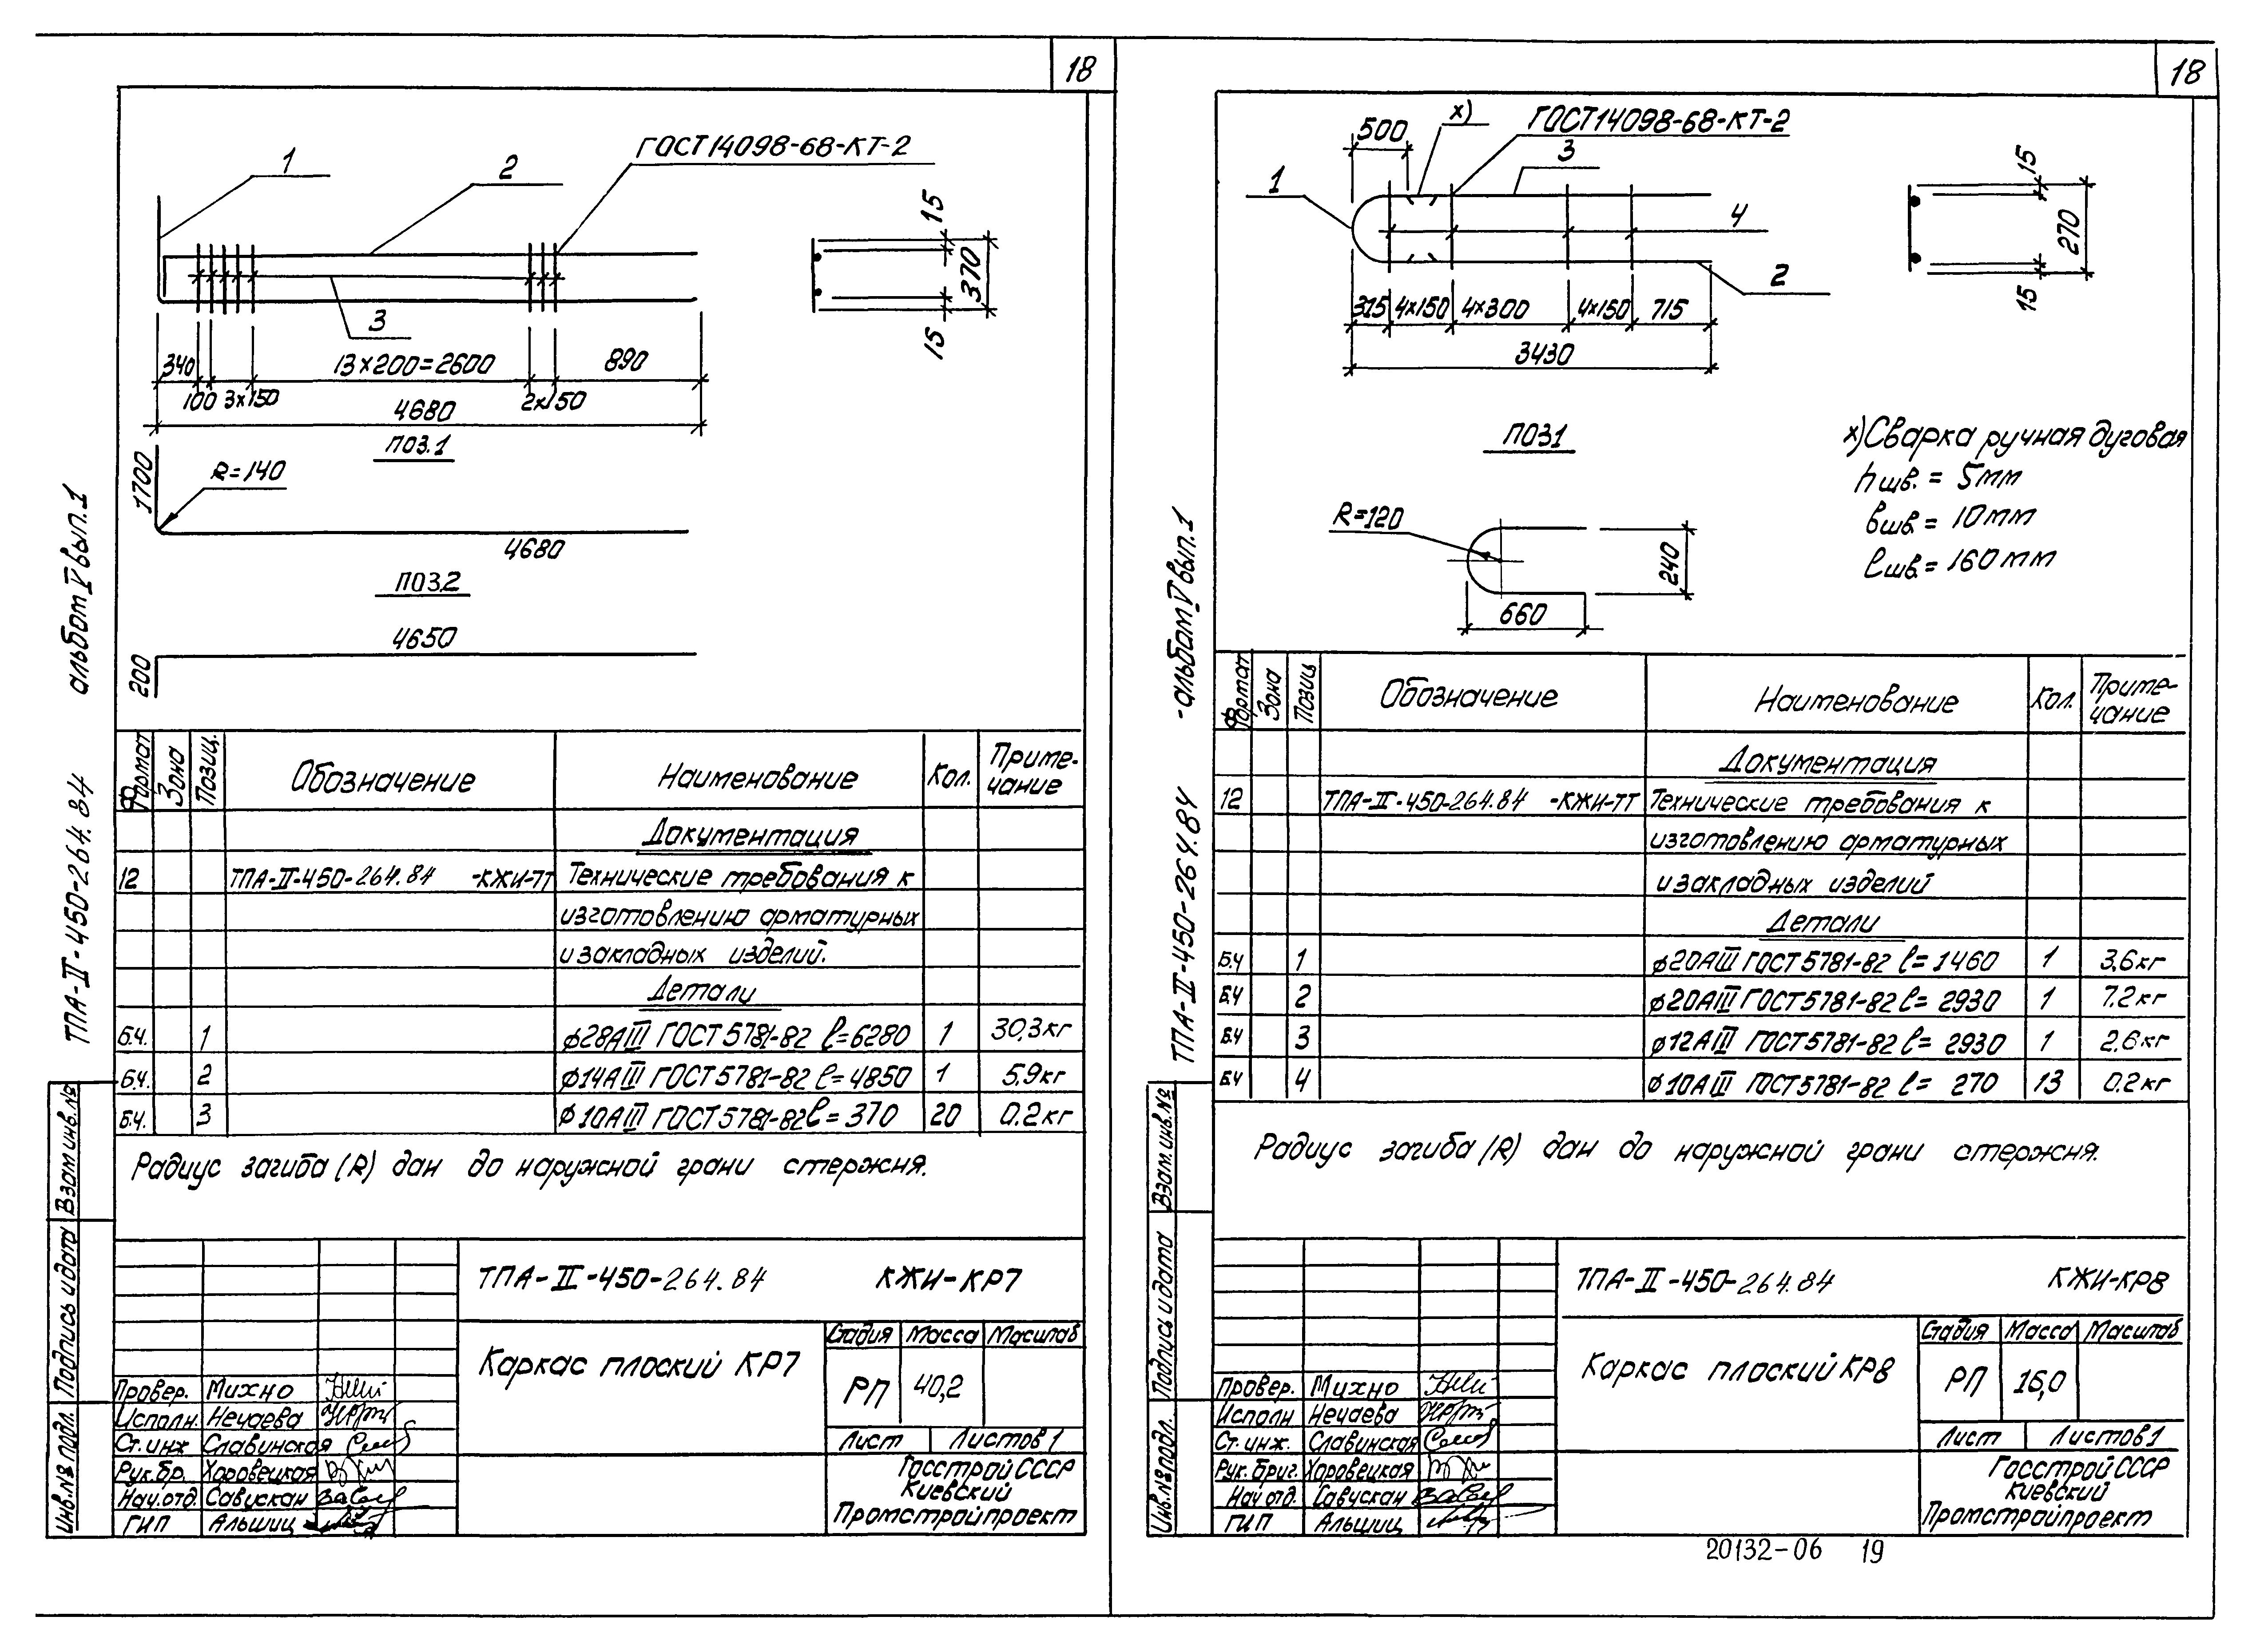 18
ГОСТ14098-68-КТ-2
1
2
3
15
370
15
340
13×200=2600
890
100
3×150
2×150
4680
ПОЗ.1
1700
R=140
4680
ПОЗ.2
4650
200
альбом V вып.1
ТПА-II-450-264.84
Формат Зона Позиц. Обозначение Наименование Кол. Приме-
чание
Документация
12 ТПА-II-450-264.84 -КЖИ-ТТ Технические требования к
изготовлению арматурных
и закладных изделий.
Детали
Б.Ч. 1 ⌀28АIII ГОСТ5781-82 ℓ=6280 1 30,3кг
Б.Ч. 2 ⌀14АIII ГОСТ5781-82 ℓ=4850 1 5,9кг
Б.Ч. 3 ⌀10АIII ГОСТ5781-82 ℓ=370 20 0.2кг
Радиус загиба (R) дан до наружной грани стержня.
Взам инв.№
Подпись и дата
Инв.№ подл.
ТПА-II-450-264.84 КЖИ-КР7
Каркас плоский КР7
Стадия Масса Масштаб
РП 40,2
Лист Листов 1
Госстрой СССР
Киевский
Промстройпроект
Провер. Михно
Исполн. Нечаева
Ст.инж Славинская
Рук.бр. Хоровецкая
Нач.отд. Савускан
ГИП Альшиц
18
500
х)
ГОСТ14098-68-КТ-2
3
1
4
2
15
270
15
315 4×150 4×300 4×150 715
3430
ПОЗ1
R=120
240
660
х)Сварка ручная дуговая
hшв. = 5мм
вшв = 10мм
ℓшв. = 160мм
-альбом V вып.1
ТПА-II-450-264.84
Формат Зона Позиц Обозначение Наименование Кол. Приме-
чание
Документация
12 ТПА-II-450-264.84 -КЖИ-ТТ Технические требования к
изготовлению арматурных
и закладных изделий
Детали
Б.Ч 1 ⌀20АIII ГОСТ5781-82 ℓ=1460 1 3,6кг
Б.Ч 2 ⌀20АIII ГОСТ5781-82 ℓ=2930 1 7.2кг
Б.Ч 3 ⌀12АIII ГОСТ5781-82 ℓ=2930 1 2.6кг
Б.Ч 4 ⌀10АIII ГОСТ5781-82 ℓ= 270 13 0.2кг
Радиус загиба (R) дан до наружной грани стержня.
Взам.инв.№
Подпись и дата
Инв.№подл.
ТПА-II-450-264.84 КЖИ-КР8
Каркас плоский КР8
Стадия Масса Масштаб
РП 16,0
Лист Листов 1
Госстрой СССР
Киевский
Промстройпроект
Провер. Михно
Исполн Нечаева
Ст.инж. Славинская
Рук.бриг. Хоровецкая
Нач.отд. Савускан
ГИП Альшиц
20132-06 19